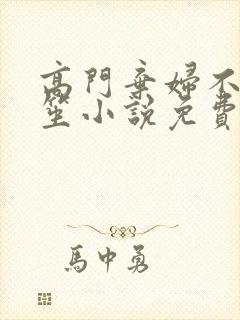 高門棄婦不
笙小說免費
馬中勇